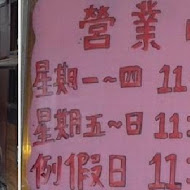 營業
星期一~四 11
星期五~日 11
例假日 11